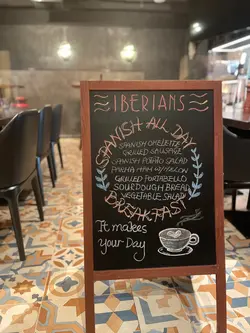 IBERIANS
SPANISH ALL DAY
SPANISH OMELETTE
GRILLED SAUSAGE
SPANISH POTATO SALAD
PARMA HAM W/MELON
GRILLED PORTABELLO
SOURDOUGH BREAD
VEGETABLE SALAD
BREAKFAST
It makes
your Day